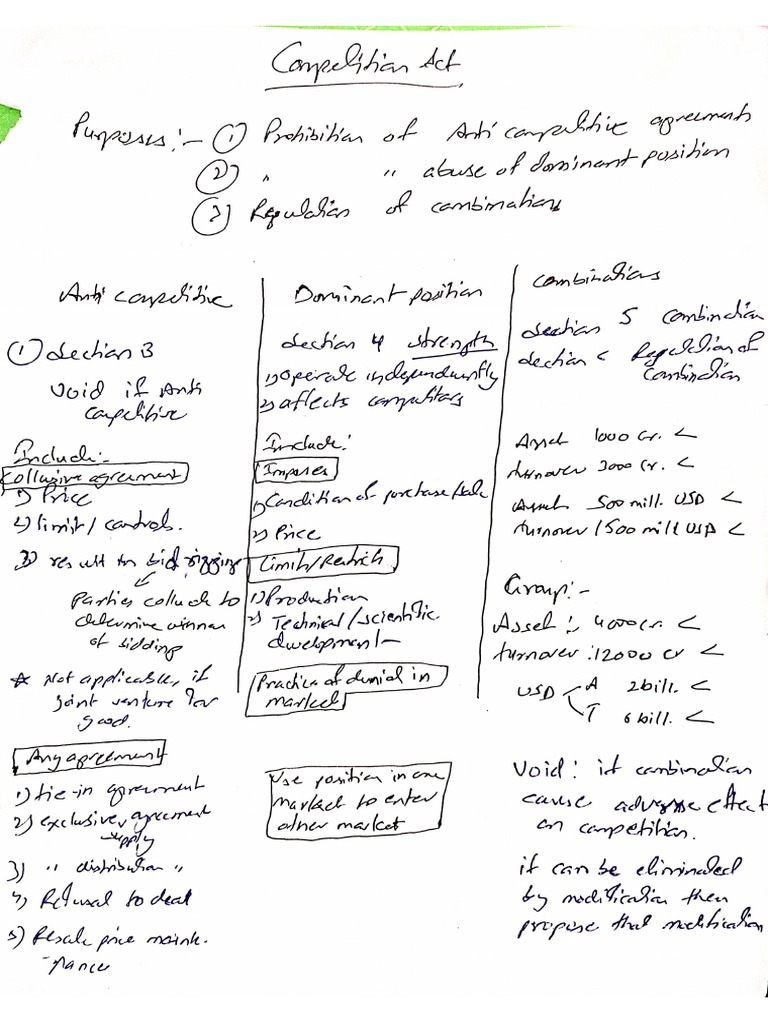 Competition Act
Purposes :- ① Prohibition of Anti competitive agreements
② " " abuse of dominant position
③ Regulation of combinations
Anti competitive
① Section 3
Void if Anti
competitive
Include:-
Collusive agreement
1) Price
2) limit / controls.
3) result in bid rigging
Parties collude to
determine winner
of bidding
* Not applicable, if
joint venture for
good.
Any agreement
1) tie-in agreement
2) exclusive agreement
supply
3) " distribution "
4) Refusal to deal
5) Resale price maint-
-nance
Dominant position
Section 4 strength
1) operate independently
2) affects competitors
Include:
Imposes
1) Condition of purchase/sale
2) Price
Limits/Restricts
1) Production
2) Technical/scientific
development-
Practice of denial in
market
Use position in one
market to enter
other market
Combinations
Section 5 Combination
Section < Regulation of
Combination
Asset 1000 cr. <
turnover 3000 cr. <
Asset 500 mill. USD <
turnover 1500 mill USD <
Group:-
Asset :- 4000 cr. <
turnover : 12000 cr <
USD A 2 bill. <
T 6 bill. <
Void : if combination
cause adverse effect
on competition.
if can be eliminated
by modification then
propose that modification